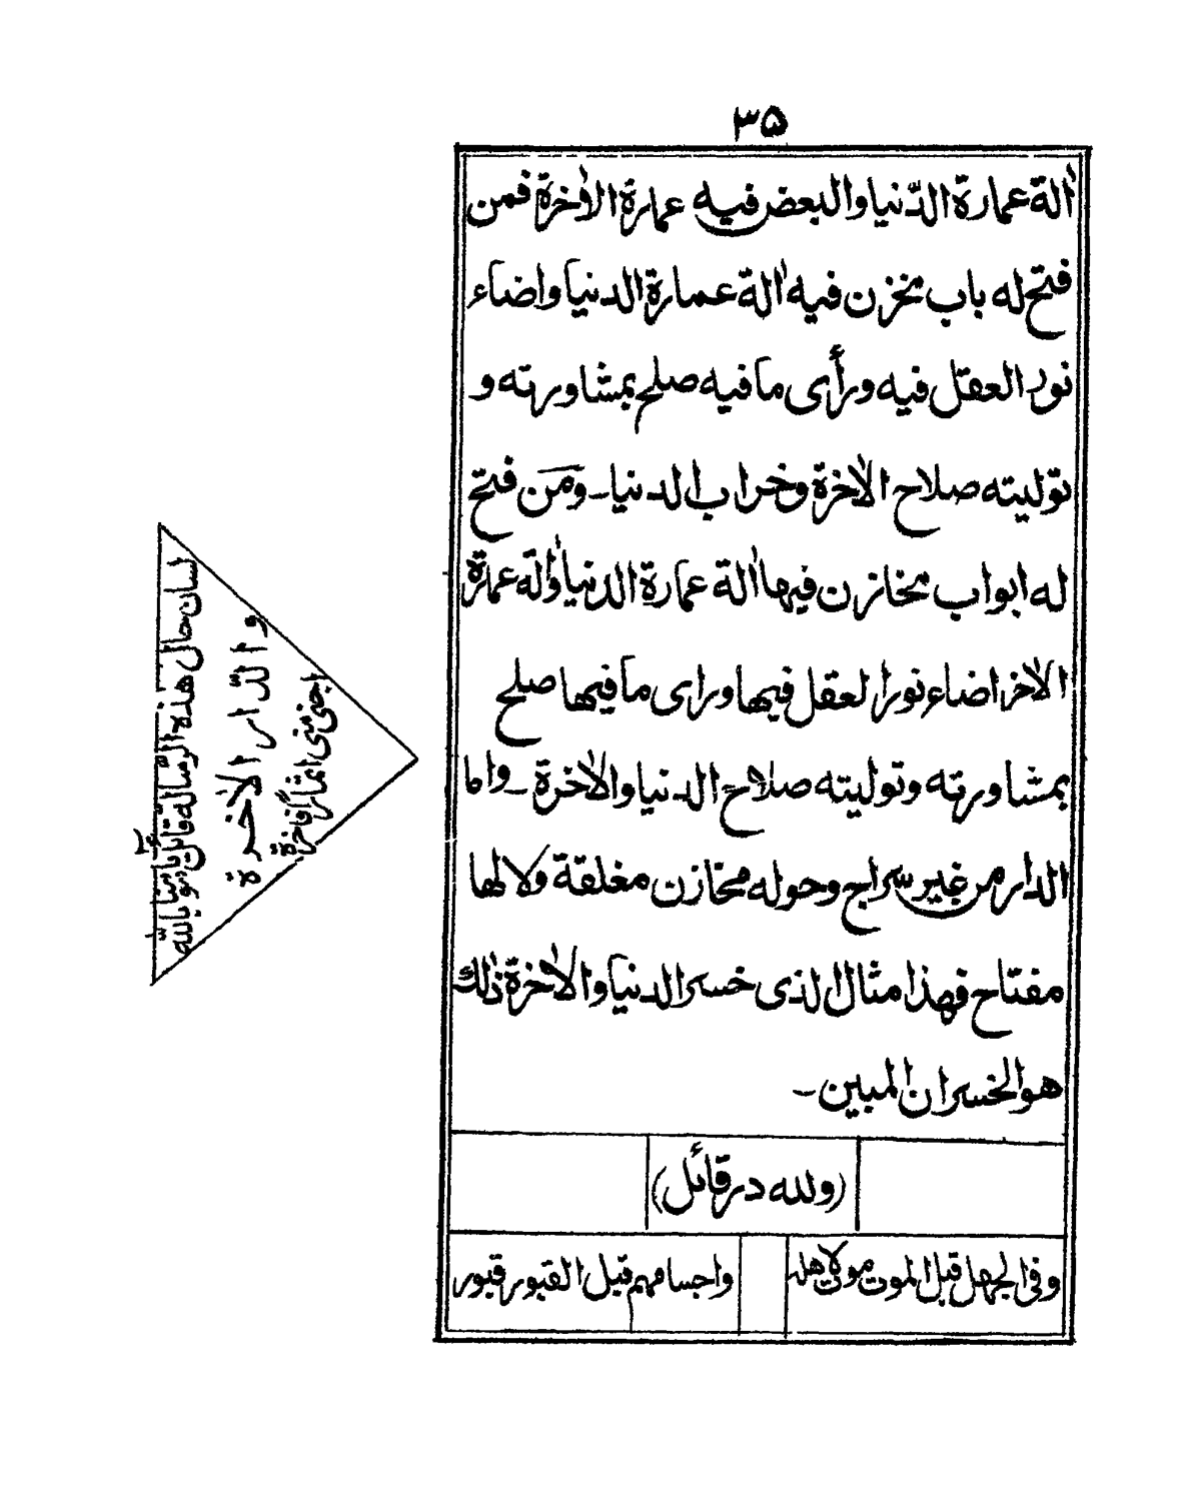 ۳۵
اٰلة عمارة الدّنيا والبعض فيه عمارة الاٰخرة فمن
فتح له باب مخزن فيه اٰلة عمارة الدنيا واضاء
نور العقل فيه ورأى ما فيه صلح بمشاورته و
توليته صلاح الاٰخرة وخراب الدنيا۔ ومَن فتح
له ابواب مخازن فيها اٰلة عمارة الدنيا واٰلة عمارة
الاٰخر اضاء نور العقل فيها وراى ما فيها صلح
بمشاورته وتوليته صلاح الدنيا والاٰخرة۔ واما
الدار من غير سراج وحوله مخازن مغلقة ولا لها
مفتاح فهذا مثال الذى خسر الدنيا والاٰخرة ذٰلك
هو الخسران المبين۔
(ولله در قائل)
وفى الجهل قبل الموت موت لاهله
واجسامهم قبل القبور قبور
لسان حال هذه الرسالة قائل
والدّار الاٰخرة
اجنى منى اثماراً فاخرة